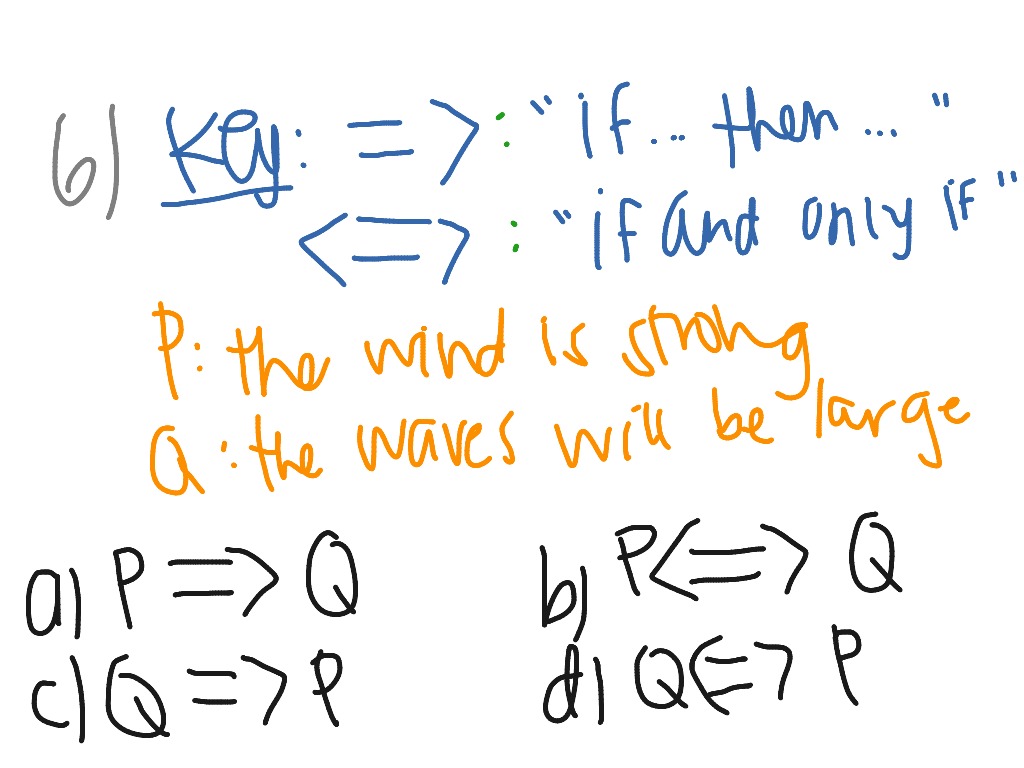 6) Key: => : "if... then..."
<=> : "if and only if"
P: the wind is strong
Q: the waves will be large
a) P => Q
b) P <=> Q
c) Q => P
d) Q <=> P